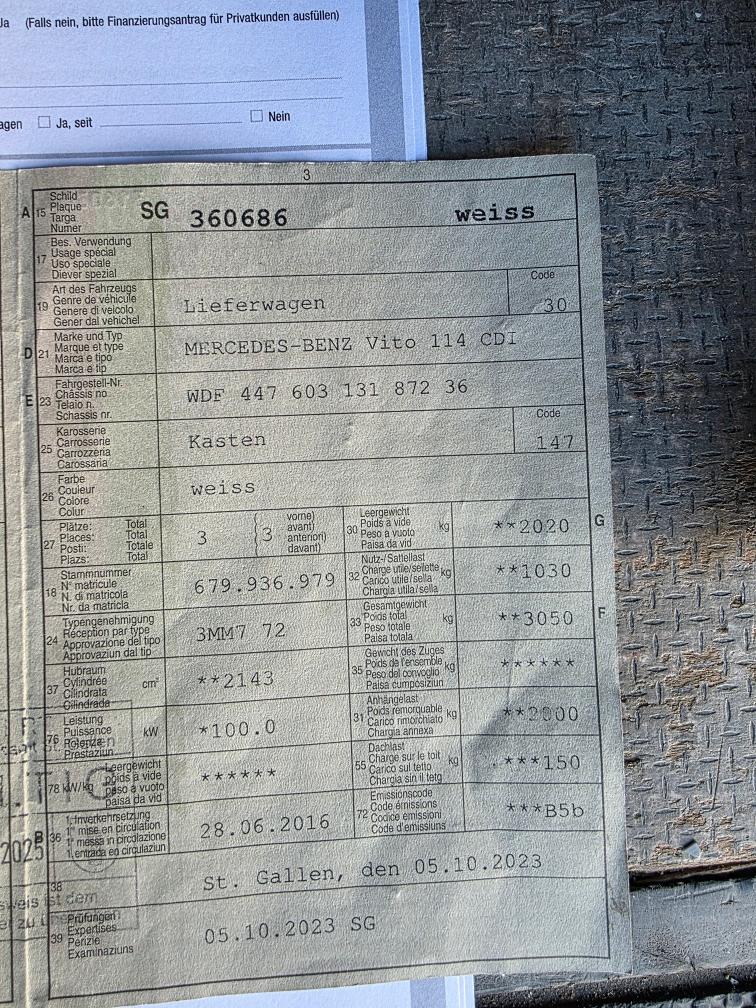 Ja (Falls nein, bitte Finanzierungsantrag für Privatkunden ausfüllen)
Ja, seit
Nein
3
A 15 Schild
Plaque
Targa
Numer
SG 360686 weiss
17 Bes. Verwendung
Usage spécial
Uso speciale
Diever spezial
19 Art des Fahrzeugs
Genre de véhicule
Genere di veicolo
Gener dal vehichel
Lieferwagen
Code
30
D 21 Marke und Typ
Marque et type
Marca e tipo
Marca e tip
MERCEDES-BENZ Vito 114 CDI
E 23 Fahrgestell-Nr.
Châssis no
Telaio n.
Schassis nr.
WDF 447 603 131 872 36
25 Karosserie
Carrosserie
Carrozzeria
Carossaria
Kasten
Code
147
26 Farbe
Couleur
Colore
Colur
weiss
27 Plätze: Total
Places: Total
Posti: Totale
Plazs: Total
3 3
vorne)
avant)
anteriori)
davant)
30 Leergewicht
Poids à vide
Peso a vuoto
Paisa da vid
kg
**2020
G
18 Stammnummer
N° matricule
N. di matricola
Nr. da matricla
679.936.979
32 Nutz-/Sattellast
Charge utile/sellette
Carico utile/sella
Chargia utila/sella
kg
**1030
24 Typengenehmigung
Réception par type
Approvazione del tipo
Approvaziun dal tip
3MM7 72
33 Gesamtgewicht
Poids total
Peso totale
Paisa totala
kg
**3050
F
37 Hubraum
Cylindrée
Cilindrata
Cilindrada
cm³
**2143
35 Gewicht des Zuges
Poids de l'ensemble
Peso del convoglio
Paisa cumposiziun
kg
******
76 Leistung
Puissance
Potenza
Prestaziun
kW
*100.0
31 Anhängelast
Poids remorquable
Carico rimorchiato
Chargia annexa
kg
**2000
78 kW/kg Leergewicht
poids à vide
peso a vuoto
paisa da vid
******
55 Dachlast
Charge sur le toit
Carico sul tetto
Chargia sin il tetg
kg
***150
B 36 1. Inverkehrsetzung
1re mise en circulation
1a messa in circolazione
1. entrada en circulaziun
28.06.2016
72 Emissionscode
Code émissions
Codice emissioni
Code d'emissiuns
***B5b
2025
38
St. Gallen, den 05.10.2023
ist dem
39 Prüfungen
Expertises
Perizie
Examinaziuns
05.10.2023 SG